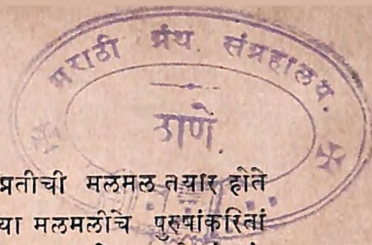 मराठी ग्रंथ संग्रहालय.
ठाणें.
प्रतीची मलमल तयार होते
या मलमलीचे पुरुषांकरितां